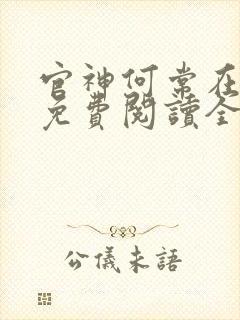 官神何常在
免費閱讀全
公儀未語